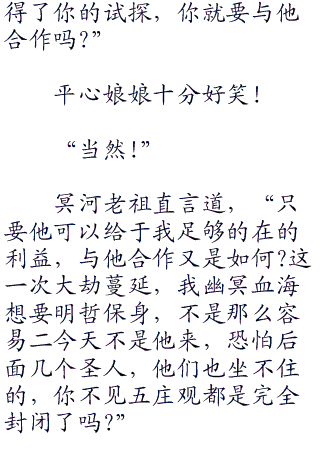 得了你的试探，你就要与他
合作吗?”
平心娘娘十分好笑！
“当然!”
冥河老祖直言道，“只
要他可以给于我足够的在的
利益，与他合作又是如何?这
一次大劫蔓延，我幽冥血海
想要明哲保身，不是那么容
易二今天不是他来，恐怕后
面几个圣人，他们也坐不住
的，你不见五庄观都是完全
封闭了吗?”